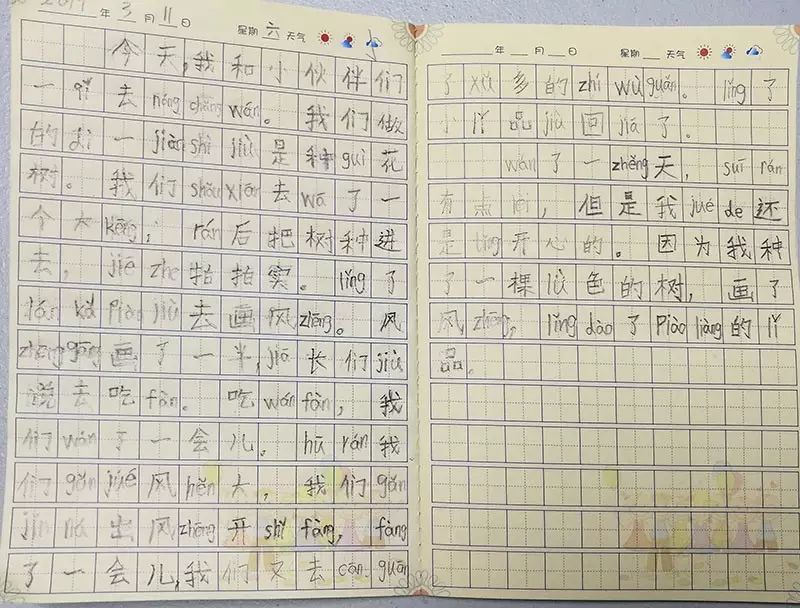 2017年3月11日 星期六天气
今天,我和小伙伴们
一qǐ去nóng chǎng wán。我们做
的dì一jiàn shì jiù是种guì花
树。我们shǒu xiān去wā了一
个大kēng,rán后把树种进
去,jiē zhe拍拍实。lǐng了
kǎ piàn jiù去画风zhēng。风
zhēng gāng画了一半,jiā长们jiù
说去吃fàn。吃wán fàn,我
们wán了一会儿。hū rán我
们gǎn jué风hěn大,我们gǎn
jǐn ná出风zhēng开shǐ fàng,fàng
了一会儿,我们又去cān guān
___年___月___日 星期___天气
了xǔ多的zhí wù guǎn。lǐng了
小lǐ品jiù回jiā了。
wán了一zhěng天,suī rán
有点,但是我jué de还
是tǐng开心的。因为我种
了一棵lǜ色的树,画了
风zhēng,lǐng dào了piào liàng的lǐ
品。